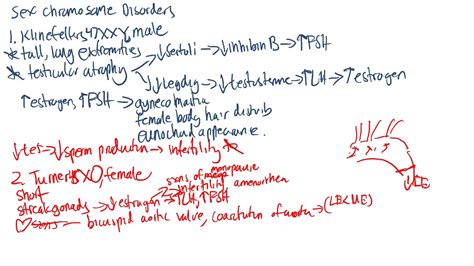 Sex chromosome Disorders
1. Klinefelters, 47XXY, male
* tall, long extremities
* testicular atrophy → ↓Sertoli → ↓inhibin B → ↑FSH
↓Leydig → ↓testosterone → ↑LH → ↑estrogen
↑estrogen, ↑FSH → gynecomastia
female body hair distrib
eunochoid appearance.
↓test → ↓sperm production → infertility *
2. Turner 45XO, female
short
streak gonads → ↓estrogen → ↑LH, ↑FSH
signs of menopause
infertility amenorrhea
bicuspid aortic valve, coarctation of aorta → (LE<UE)
↓LE